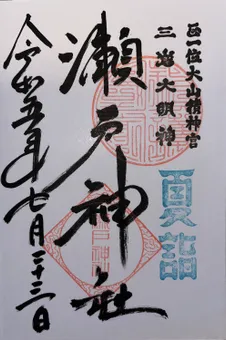 正一位大山積神宮
三島大明神
夏詣
瀬戸神社
令和五年七月二十三日